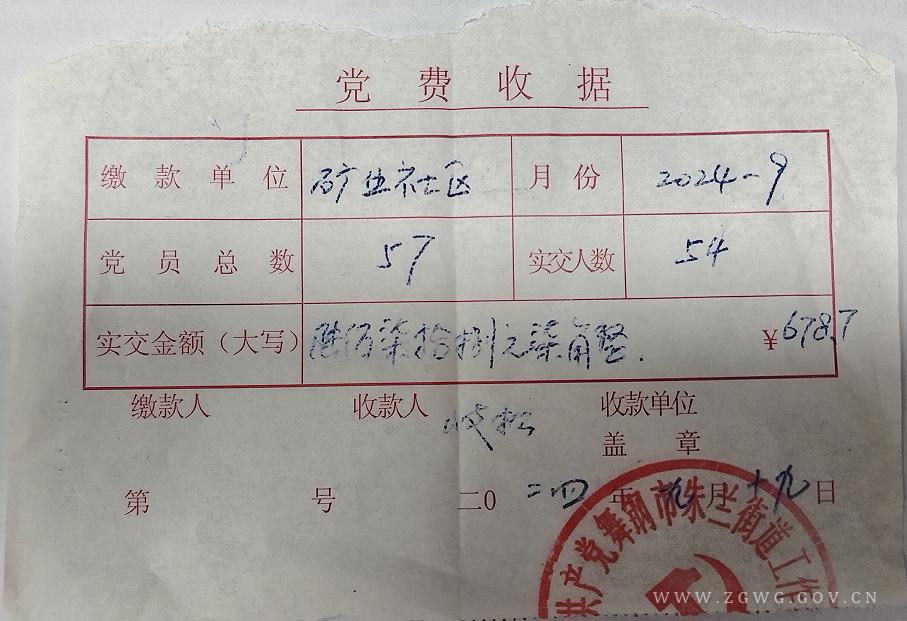 党费收据
缴款单位 矿业社区 月份 2024-9
党员总数 57 实交人数 54
实交金额（大写） 陆佰柒拾捌元柒角整. ¥678.7
缴款人 收款人 收款单位
盖章
第 号 二0二四年九月十九日
共产党舞钢市朱兰街道工作
WWW.ZGWG.GOV.CN